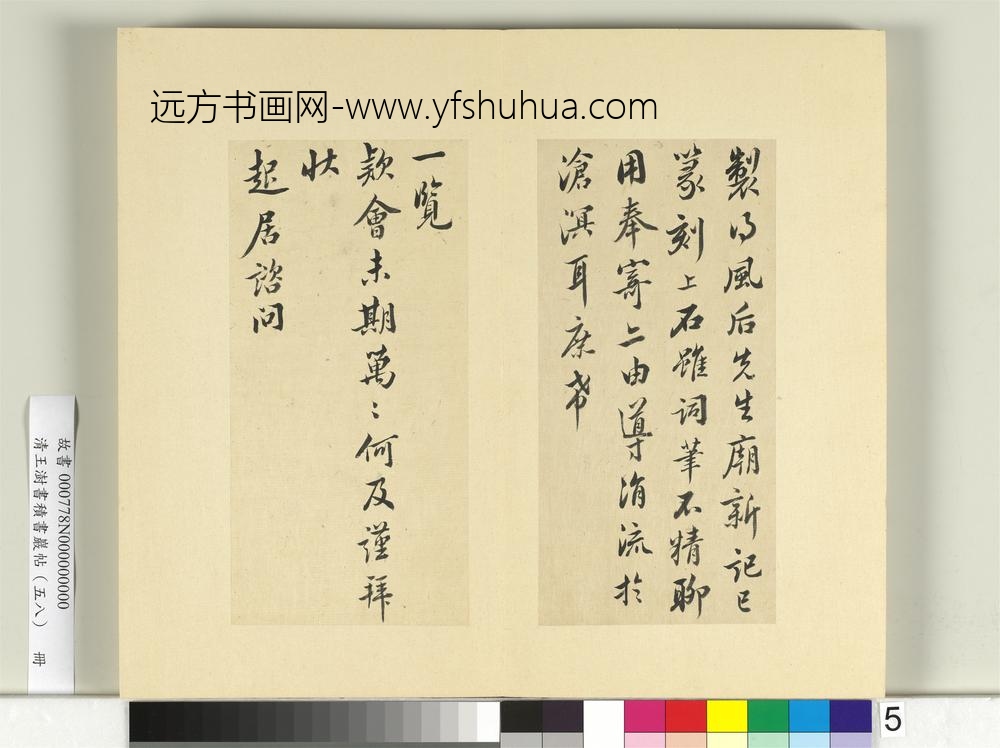 远方书画网-www.yfshuhua.com
製得風后先生廟新記已
篆刻上石雖詞筆不精聊
用奉寄亦由導涓流於
滄溟耳庶希
一覽
款會未期萬〻何及謹拜
狀
起居諮問
故書000778N000000000
清王澍書積書巖帖(五八) 冊
5